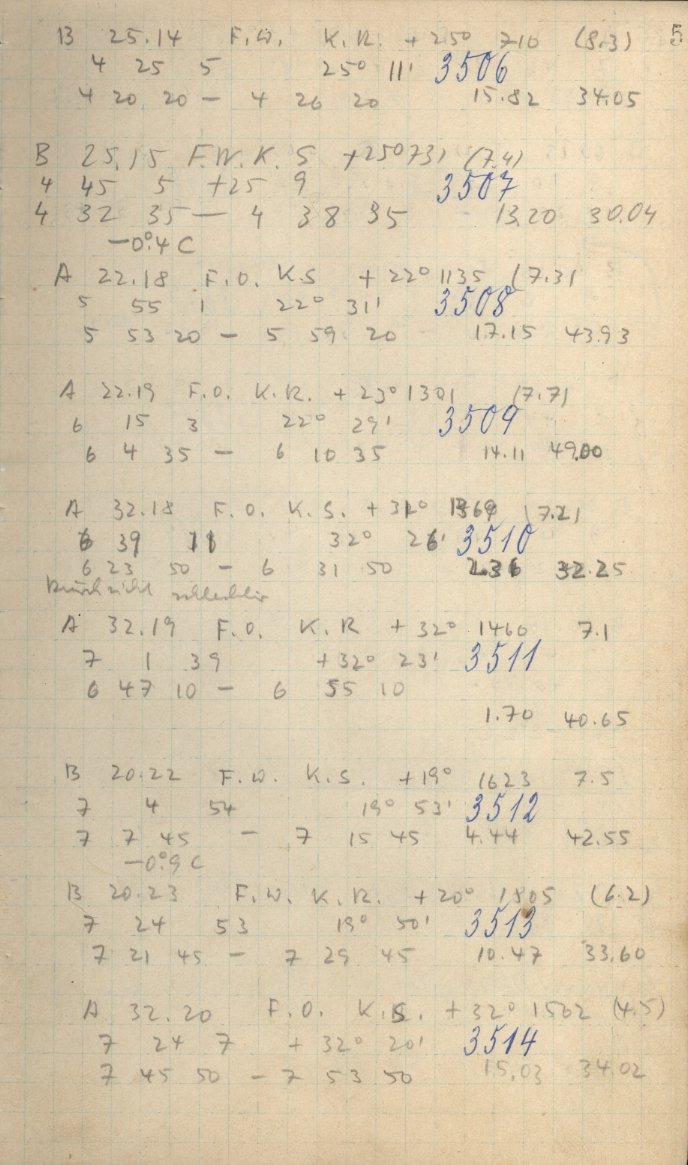 5
B 25.14 F.W. K.R. +25° 710 (8.3)
4 25 5 25° 11' 3506
4 20 20 – 4 26 20 15.82 34.05
B 25.15 F.W. K.S +25° 731 (7.4)
4 45 5 +25 9 3507
4 32 35 – 4 38 35 13.20 30.04
–0°.4 C
A 22.18 F.O. K.S +22° 1135 (7.3)
5 55 1 22° 31' 3508
5 53 20 – 5 59 20 17.15 43.93
A 22.19 F.O. K.R. +23° 1301 (7.7)
6 15 3 22° 29' 3509
6 4 35 – 6 10 35 14.11 49.00
A 32.18 F.O. K.S. +31° 1369 (7.2)
6 39 11 32° 26' 3510
6 23 50 – 6 31 50 2.36 32.25
Durchsicht
A 32.19 F.O. K.R +32° 1460 7.1
7 1 39 +32° 23' 3511
6 47 10 – 6 55 10
1.70 40.65
B 20.22 F.W. K.S. +19° 1623 7.5
7 4 54 19° 53' 3512
7 7 45 – 7 15 45 4.44 42.55
–0°.9 C
B 20.23 F.W. K.R. +20° 1805 (6.2)
7 24 53 19° 50' 3513
7 21 45 – 7 29 45 10.47 33.60
A 32.20 F.O. K.S. +32° 1502 (4.5)
7 24 7 +32° 20' 3514
7 45 50 – 7 53 50 15.03 34.02